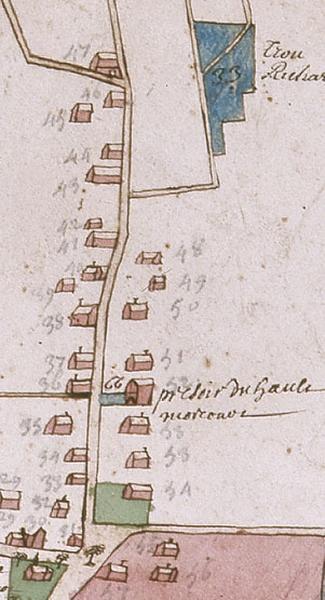 47
33
Trou
Richar
46
45
44
43
42
41
48
40
49
39
50
38
37
51
36
66
presoir du hault
morcourt
35
34
53
33
54
32
30
31
29
56
57